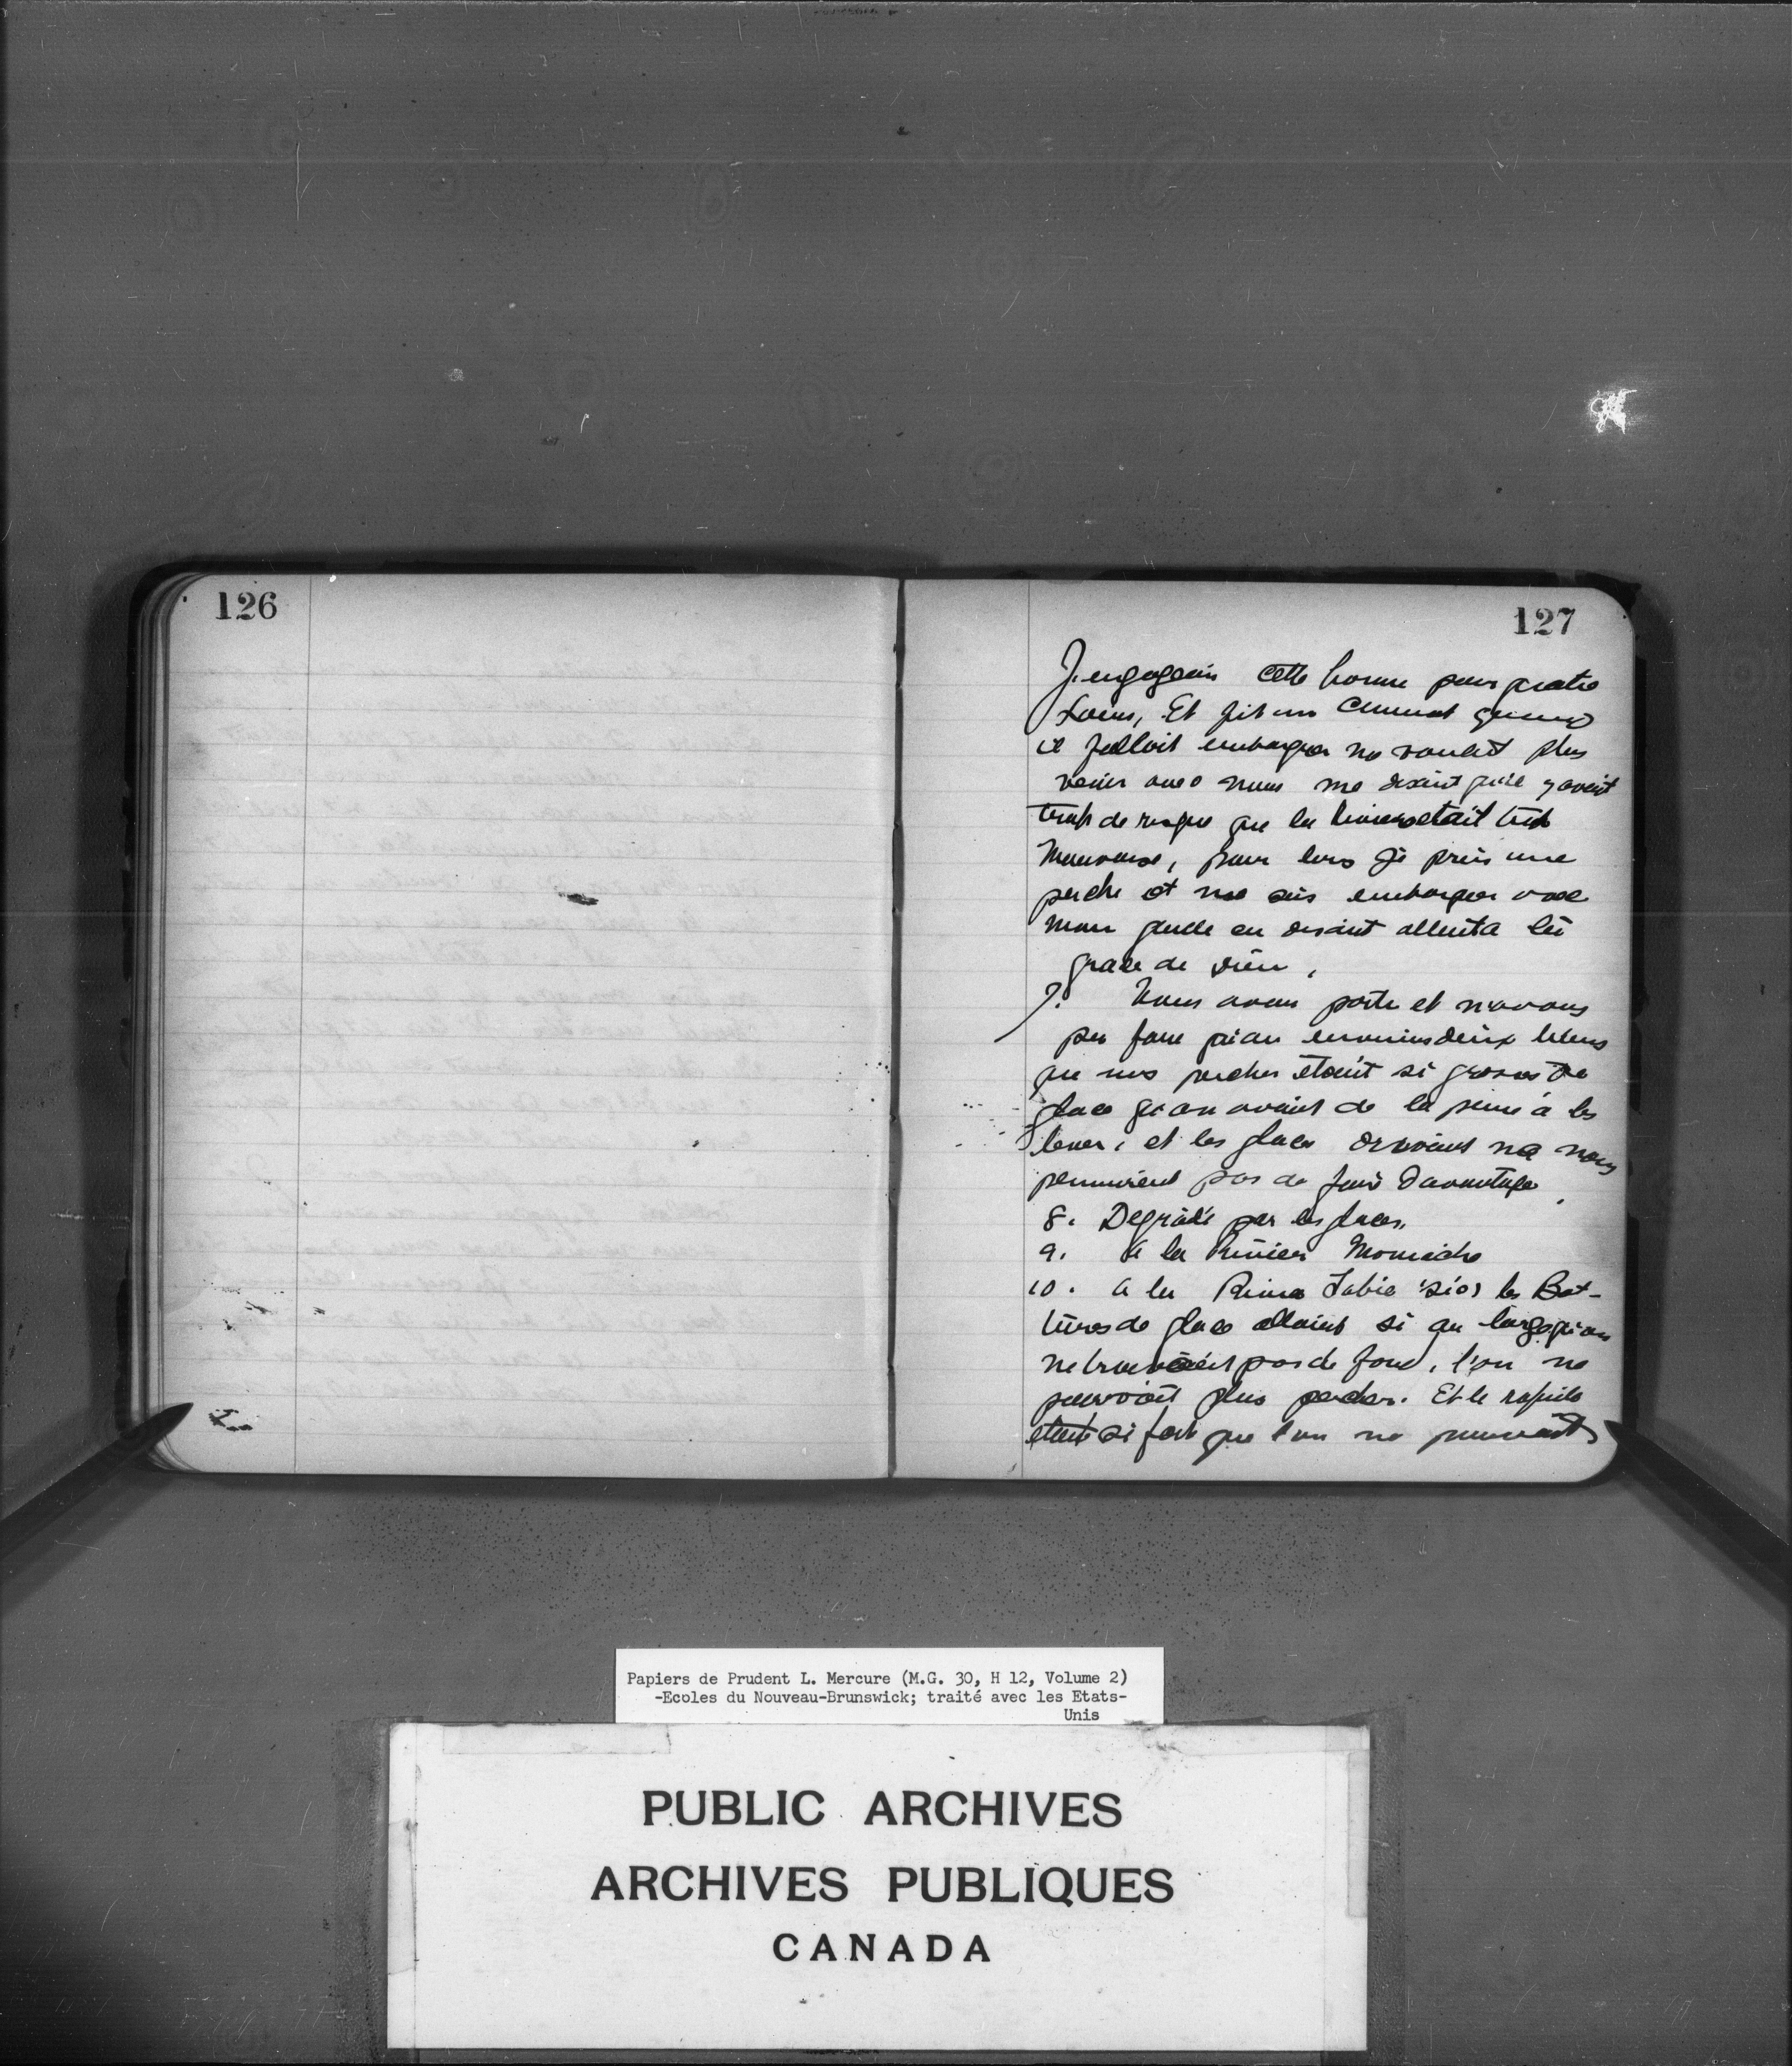 126
127
J'engageais cette homme pour quatre
Louis, Et fit un quand
il falloit embarquer ne voulait plus
venir avec nous me disant qu'il y avoit
trop de risque que la rivière était trop
mauvaise, pour lors je pris une
perche et me suis embarquer avec
mon guide en disant allent a la
grace de Dieu.
7. Nous avons porte et n'avons
pu faire qu'an environ deux lieus
que nos perches étoint si grosses de
glace qu'on avaint de la peine à les
lever, et les glaces dérivant ne nous
permirent pas de faire davantage.
8. Dégradé par les glaces.
9. à la Rivière Monniche
10. a la Rivière Tobic (sic) les Bat-
tures de glace allaint si au large qu'on
ne trouvoint pas de fond, l'on ne
pouvoit plus percher. Et le rapide
étant si fort que l'on ne pouvoit
Papiers de Prudent L. Mercure (M.G. 30, H 12, Volume 2)
-Ecoles du Nouveau-Brunswick; traité avec les Etats-
Unis
PUBLIC ARCHIVES
ARCHIVES PUBLIQUES
CANADA